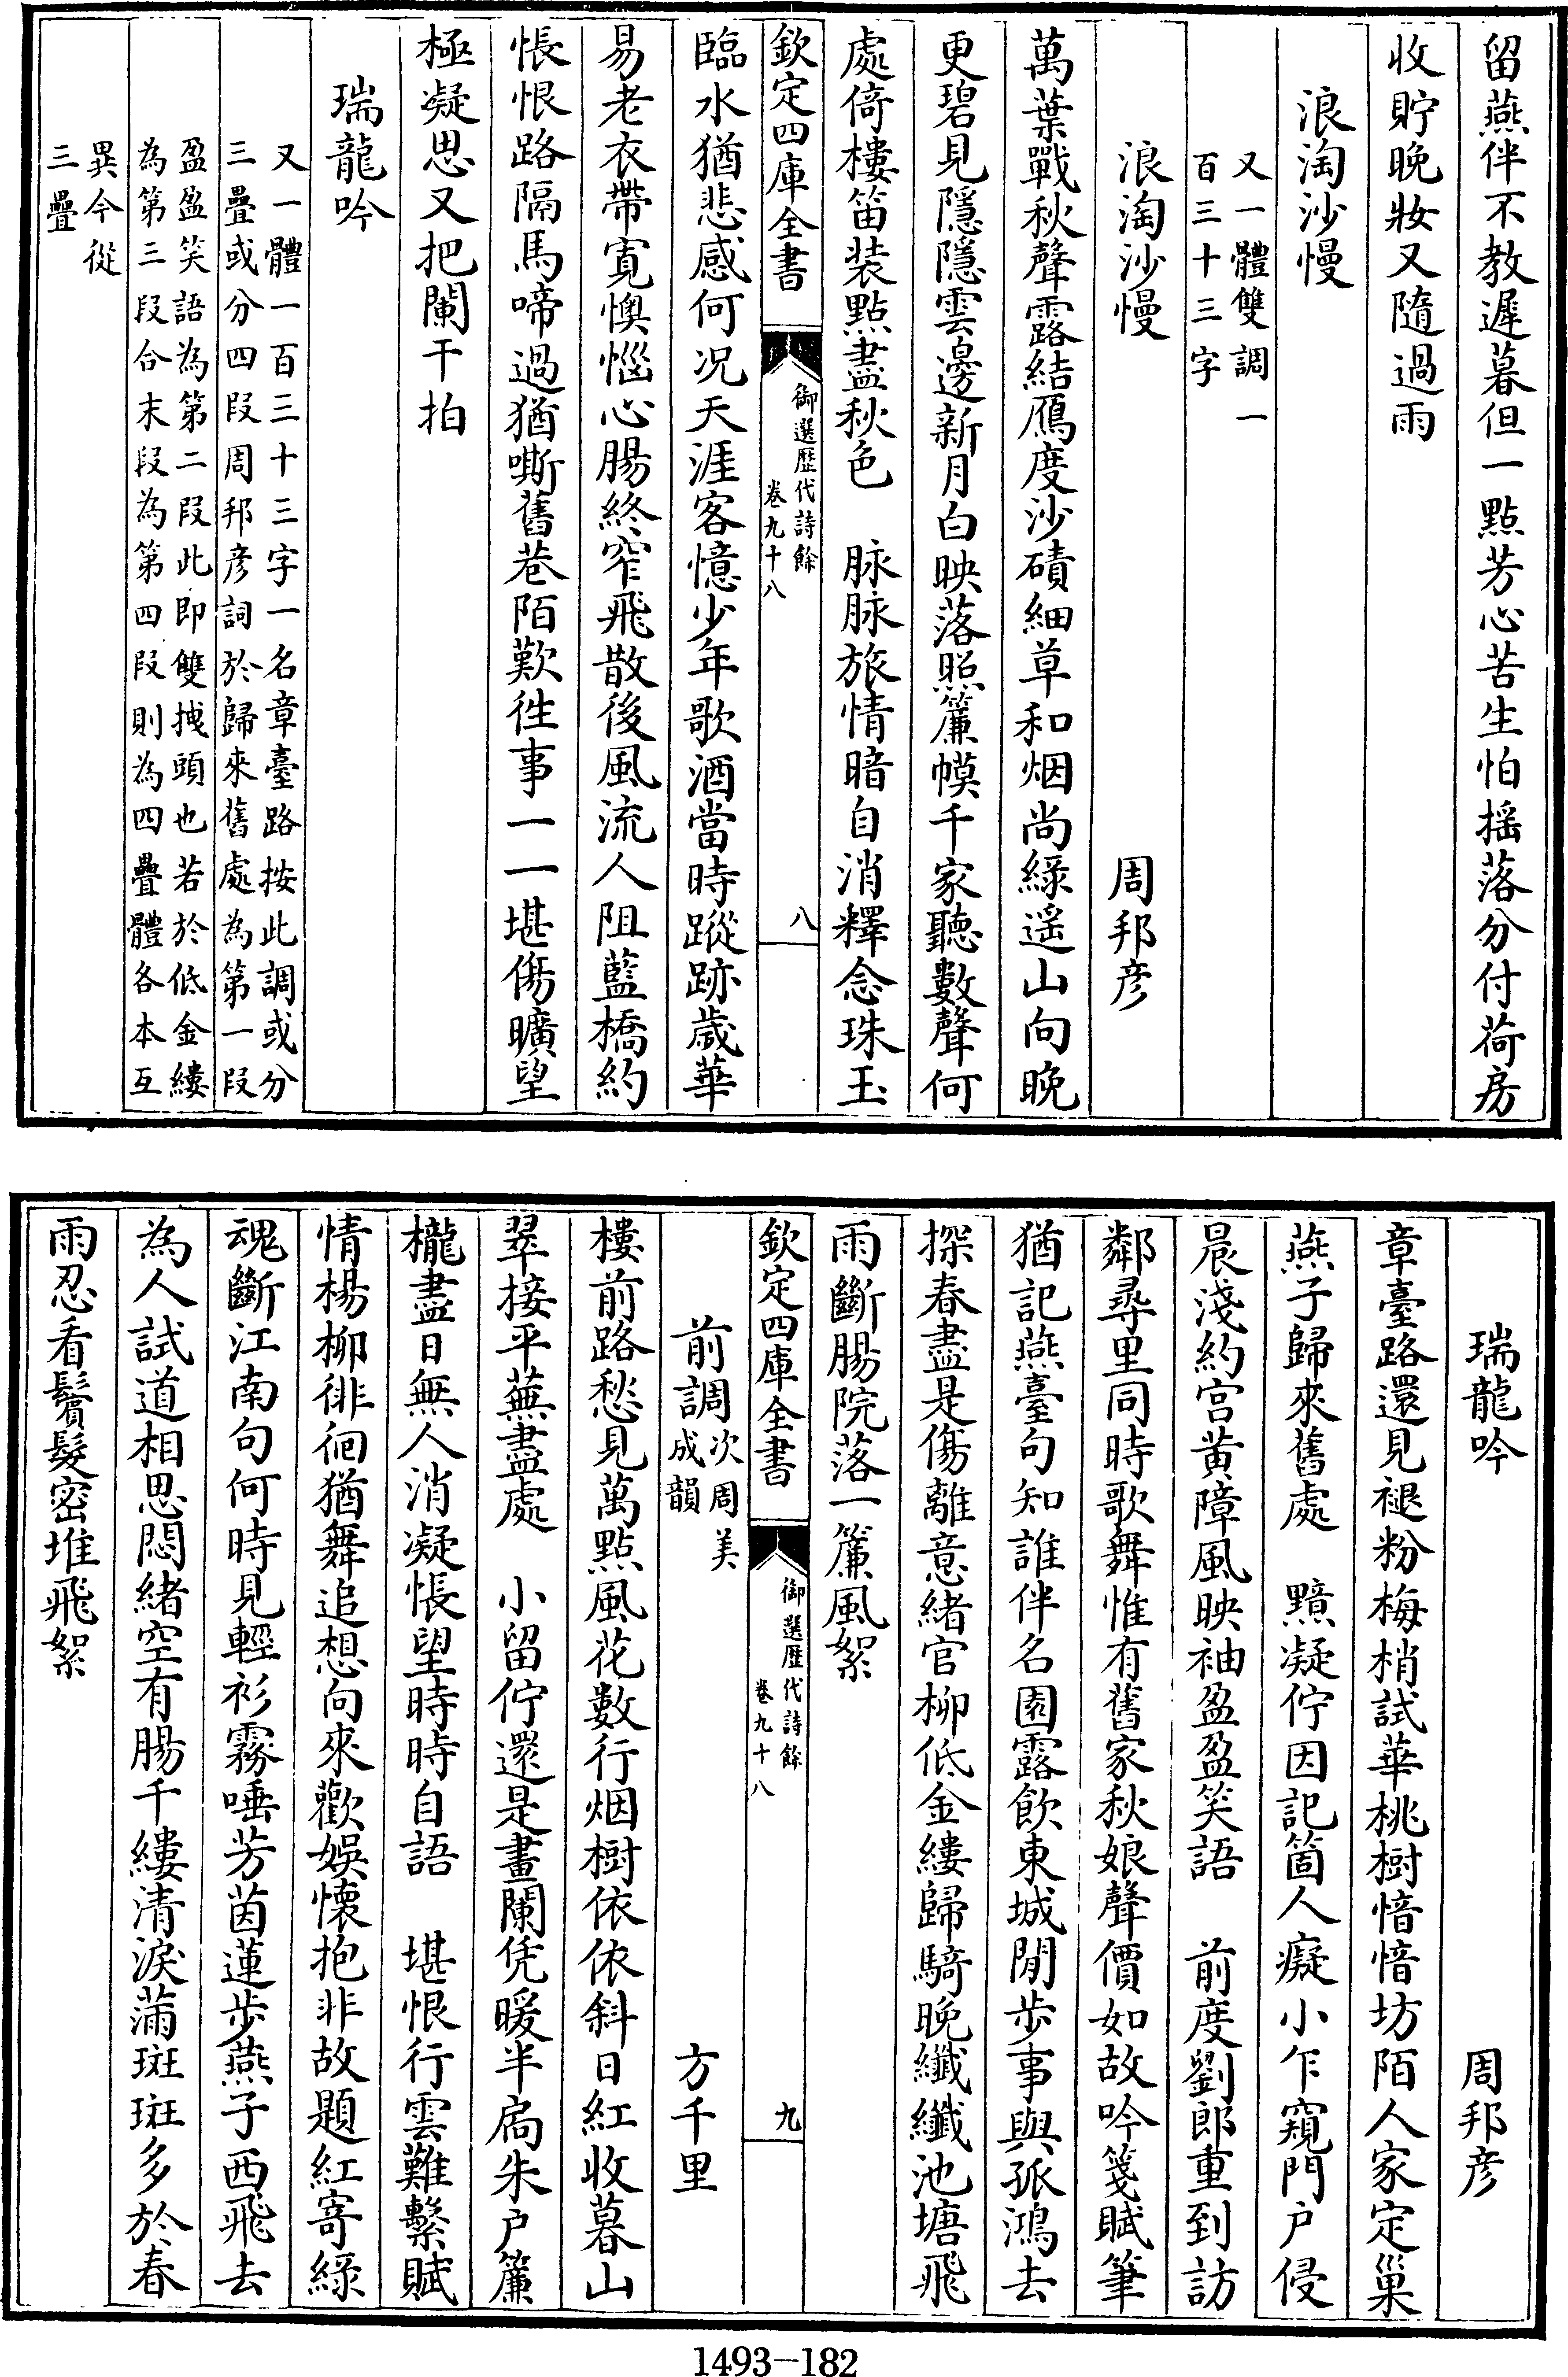 留燕伴不教遲暮但一點芳心苦生怕揺落分付荷房
收貯晚妝又隨過雨
浪淘沙慢
又一體雙調一
百三十三字
浪淘沙慢 周邦彦
萬葉戰秋聲露結鴈度沙磧細草和烟尚綠遥山向晚
更碧見隱隱雲邊新月白映落照簾幙千家聽數聲何
處倚樓笛装點盡秋色 脉脉旅情暗自消釋念珠玉
欽定四庫全書
御選歷代詩餘
卷九十八
八
臨水猶悲感何况天涯客憶少年歌酒當時蹤跡歲華
易老衣帶寛懊惱心腸終窄飛散後風流人阻藍橋約
悵恨路隔馬啼過猶嘶舊巷陌歎徃事一一堪傷曠望
極凝思又把闌干拍
瑞龍吟
又一體一百三十三字一名章臺路按此調或分
三疊或分四段周邦彦詞於歸來舊處為第一段
盈盈笑語為第二段此即雙拽頭也若於低金縷
為第三段合末段為第四段則為四疊體各本互
異今從
三疊
瑞龍吟 周邦彦
章臺路還見褪粉梅梢試華桃樹愔愔坊陌人家定巢
燕子歸來舊處 黯凝佇因記箇人癡小乍窺門户侵
晨淺約宫黄障風映袖盈盈笑語 前度劉郎重到訪
鄰尋里同時歌舞惟有舊家秋娘聲價如故吟箋賦筆
猶記燕臺句知誰伴名園露飲東城閒步事與孤鴻去
探春盡是傷離意緒官柳低金縷歸騎晚纖纖池塘飛
雨斷腸院落一簾風絮
欽定四庫全書
御選歷代詩餘
卷九十八
九
前調次周美
成韻 方千里
樓前路愁見萬點風花數行烟樹依依斜日紅收暮山
翠接平蕪盡處 小留佇還是畫闌凭暖半扃朱户簾
櫳盡日無人消凝悵望時時自語 堪恨行雲難繫賦
情楊柳徘徊猶舞追想向來歡娛懷抱非故題紅寄綠
魂斷江南句何時見輕衫霧唾芳茵蓮步燕子西飛去
為人試道相思悶緒空有腸千縷清淚滿斑斑多於春
雨忍看鬢髮密堆飛絮
1493—182